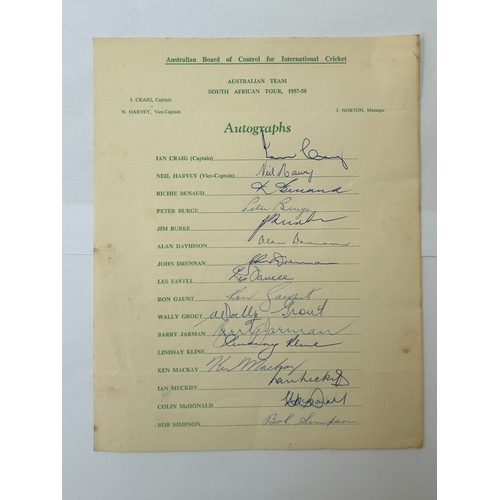 Australian Board of Control for International Cricket
AUSTRALIAN TEAM
SOUTH AFRICAN TOUR, 1957-58
I. CRAIG, Captain
N. HARVEY, Vice-Captain J. NORTON, Manager
Autographs
IAN CRAIG (Captain) Ian Craig
NEIL HARVEY (Vice-Captain) Neil Harvey
RICHIE BENAUD R Benaud
PETER BURGE Peter Burge
JIM BURKE J Burke
ALAN DAVIDSON Alan Davidson
JOHN DRENNAN J Drennan
LES FAVELL Les Favell
RON GAUNT Ron Gaunt
WALLY GROUT Wally Grout
BARRY JARMAN Barry Jarman
LINDSAY KLINE Lindsay Kline
KEN MACKAY Ken Mackay
IAN MECKIFF Ian Meckiff
COLIN McDONALD
BOB SIMPSON Bob Simpson